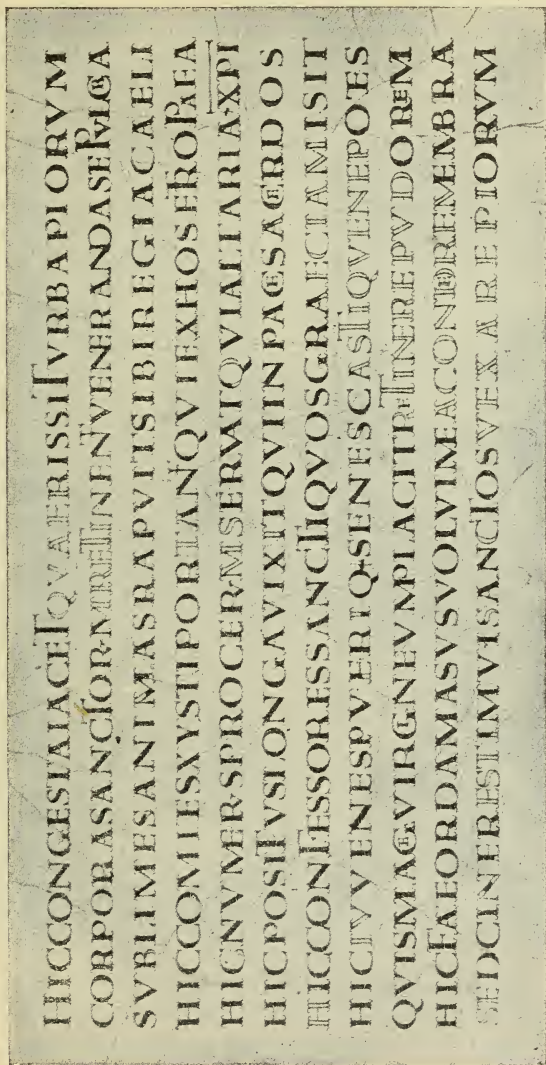 HICCONGESTAIACETQVAERISSITVRBAPIORVM
CORPORASANCTORVMRETINENTVENERANDASEPVLCRA
SVBLIMESANIMASRAPVITSIBIREGIACAELI
HICCOMITESXYSTIPORTANTQVIEXHOSTETROPAEA
HICNVMERVSPROCERVMSERVATQVIALTARIAXPI
HICPOSITVSLONGAVIXITQVIINPACESACERDOS
HICCONFESSORESSANCTIQVOSGRAECIAMISIT
HICIVVENESPVERIQSENESCASTIQVENEPOTES
QVISMAGEVIRGINEVMPLACVITRETINEREPVDOREM
HICFATEORDAMASVSVOLVIMEACONDEREMEMBRA
SEDCINERESTIMVISANCTOSVEXAREPIORVM